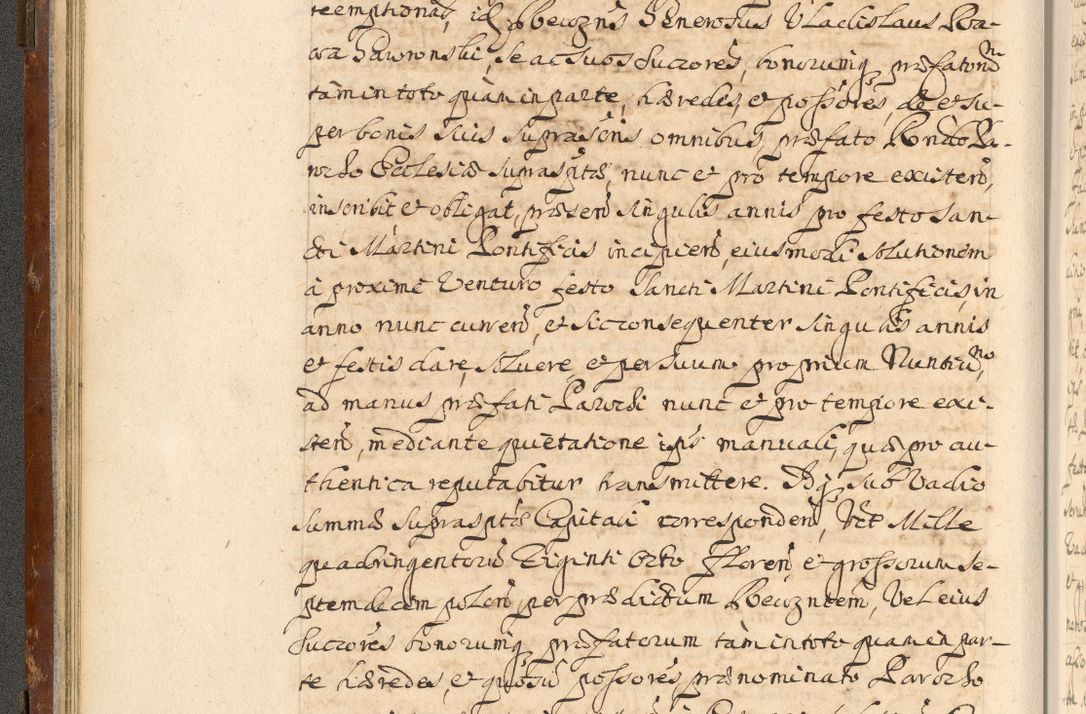 reemptionat, id Recogn͠s Generosus Vladislaus Ra-
wa Gaworonski, se ac suos Succores, bonorumq præfator
tam in toto quam in parte, hæredes, et possores, de et su-
per bonis suis suprascris omnibus, præfato Rndo Pa-
rocho Ecclesiæ suprasptæ, nunc et pro tempore existen,
inscribit et obligat, præsen singulis annis pro festo San-
cti Martini Pontificis incipien, eiusmodi solutionem
à proxime Venturo festo Sancti Martini Pontificis, in
anno nunc curren, et sic consequenter singulis annis
et festis dare, solvere, et per suum proprium Nuntiu,
ad manus præfati Parochi nunc et pro tempore exi-
sten, mediante quietatione ips manuali, quæ pro au-
thentica reputabitur transmittere. Idq sub Vadio
summæ suprasptæ Capitali corresponden, Vet Mille
quadringentoru Viginti octo Floren et grossorum se-
ptemdecem polon, per prædictum Recogntem, Vel eius
Succores bonorumq præfatorum tam in toto quam in par-
te hæredes, et quosu possores prænominato Parocho